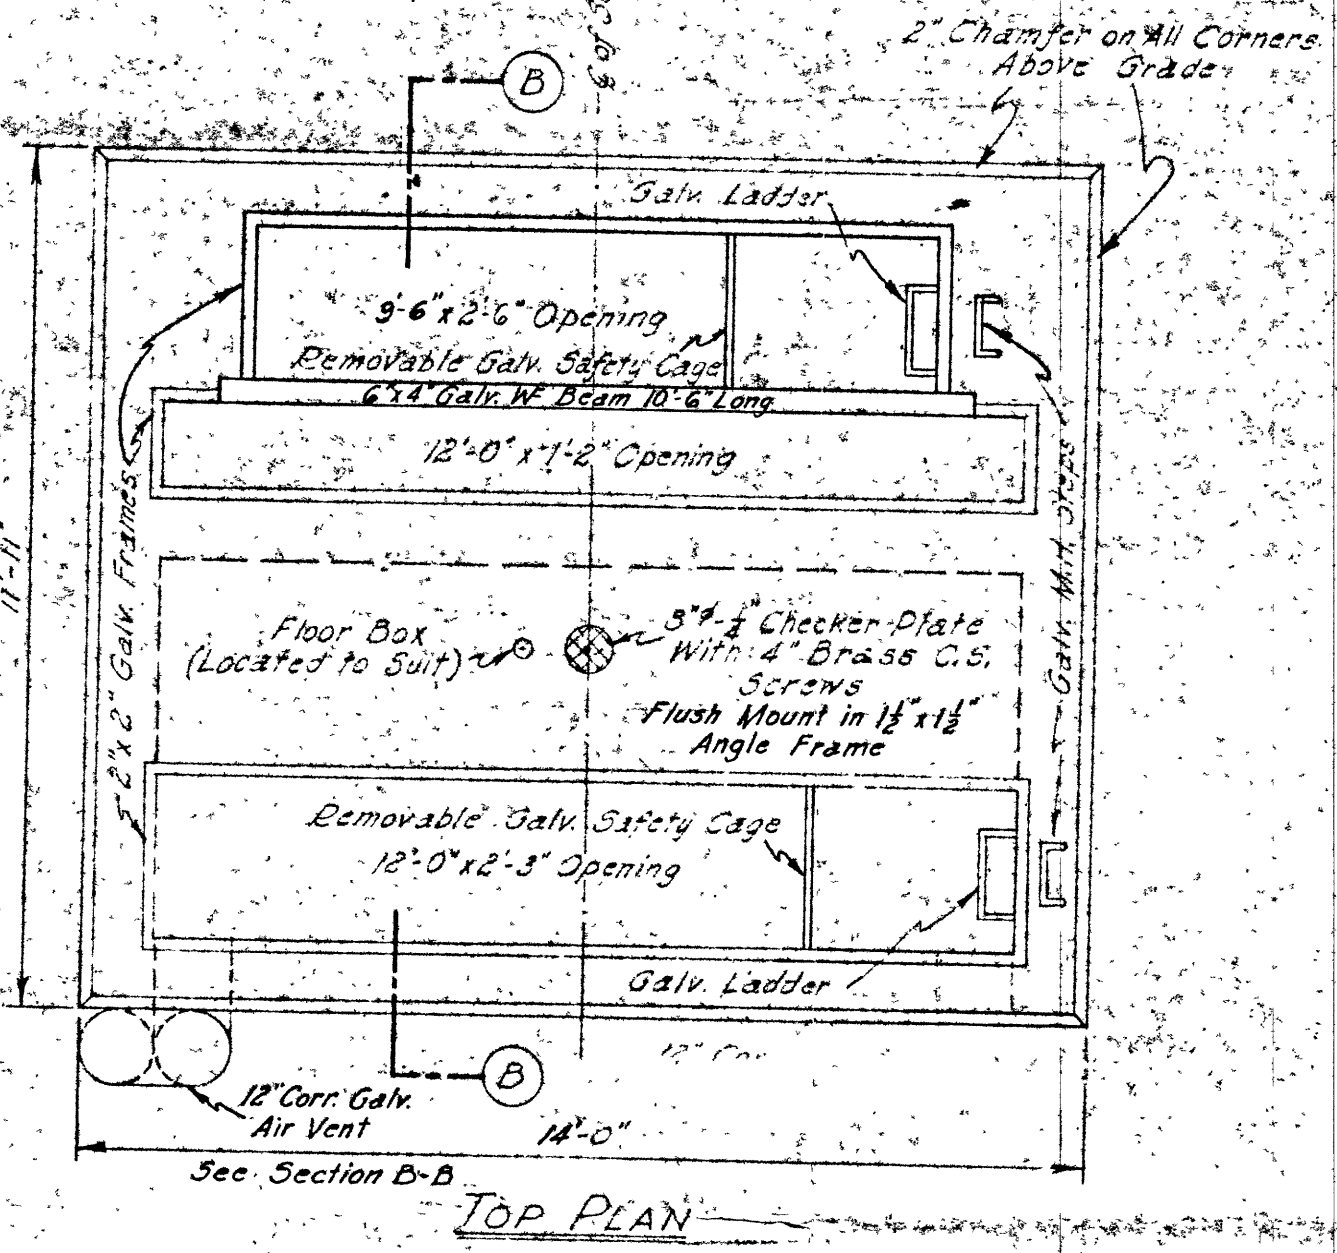 2" Chamfer on All Corners
Above Grade
B
Galv. Ladder
9'-6" x 2'-6" Opening
Removable Galv. Safety Cage
6"x4" Galv. WF Beam 10'-6" Long
12'-0" x 1'-2" Opening
2" x 2" Galv. Frames
Galv. M.H. Steps
Floor Box
(Located to Suit)
Checker Plate
With 4" Brass C.S.
Screws
Flush Mount in 1½" x 1½"
Angle Frame
Removable Galv. Safety Cage
12'-0" x 2'-3" Opening
Galv. Ladder
B
12" Corr. Galv.
Air Vent
14'-0"
See Section B-B
TOP PLAN